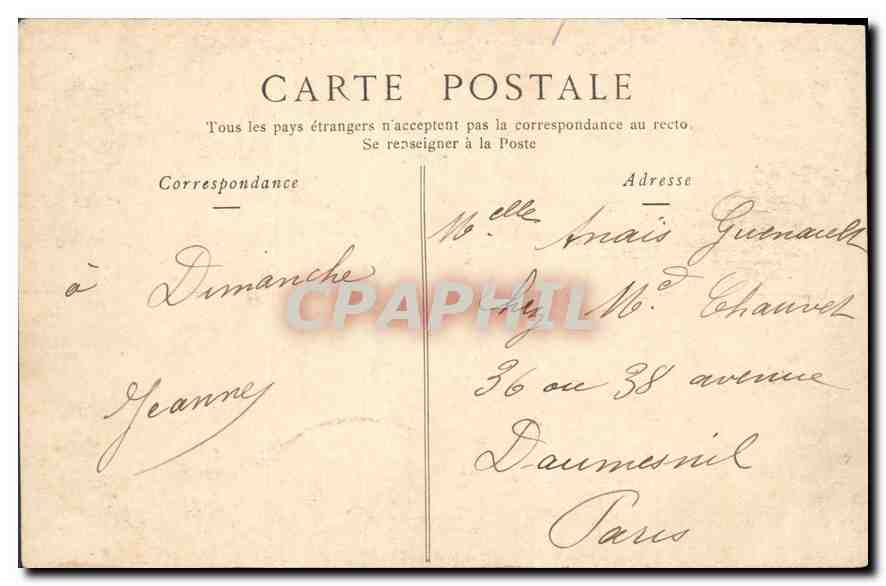 CARTE POSTALE
Tous les pays étrangers n'acceptent pas la correspondance au recto.
Se renseigner à la Poste
Correspondance
à Dimanche
Jeanne
Adresse
Melle Anaïs Guenault
Chez Md Chauvet
36 ou 38 avenue
Daumesnil
Paris
CPAPHIL